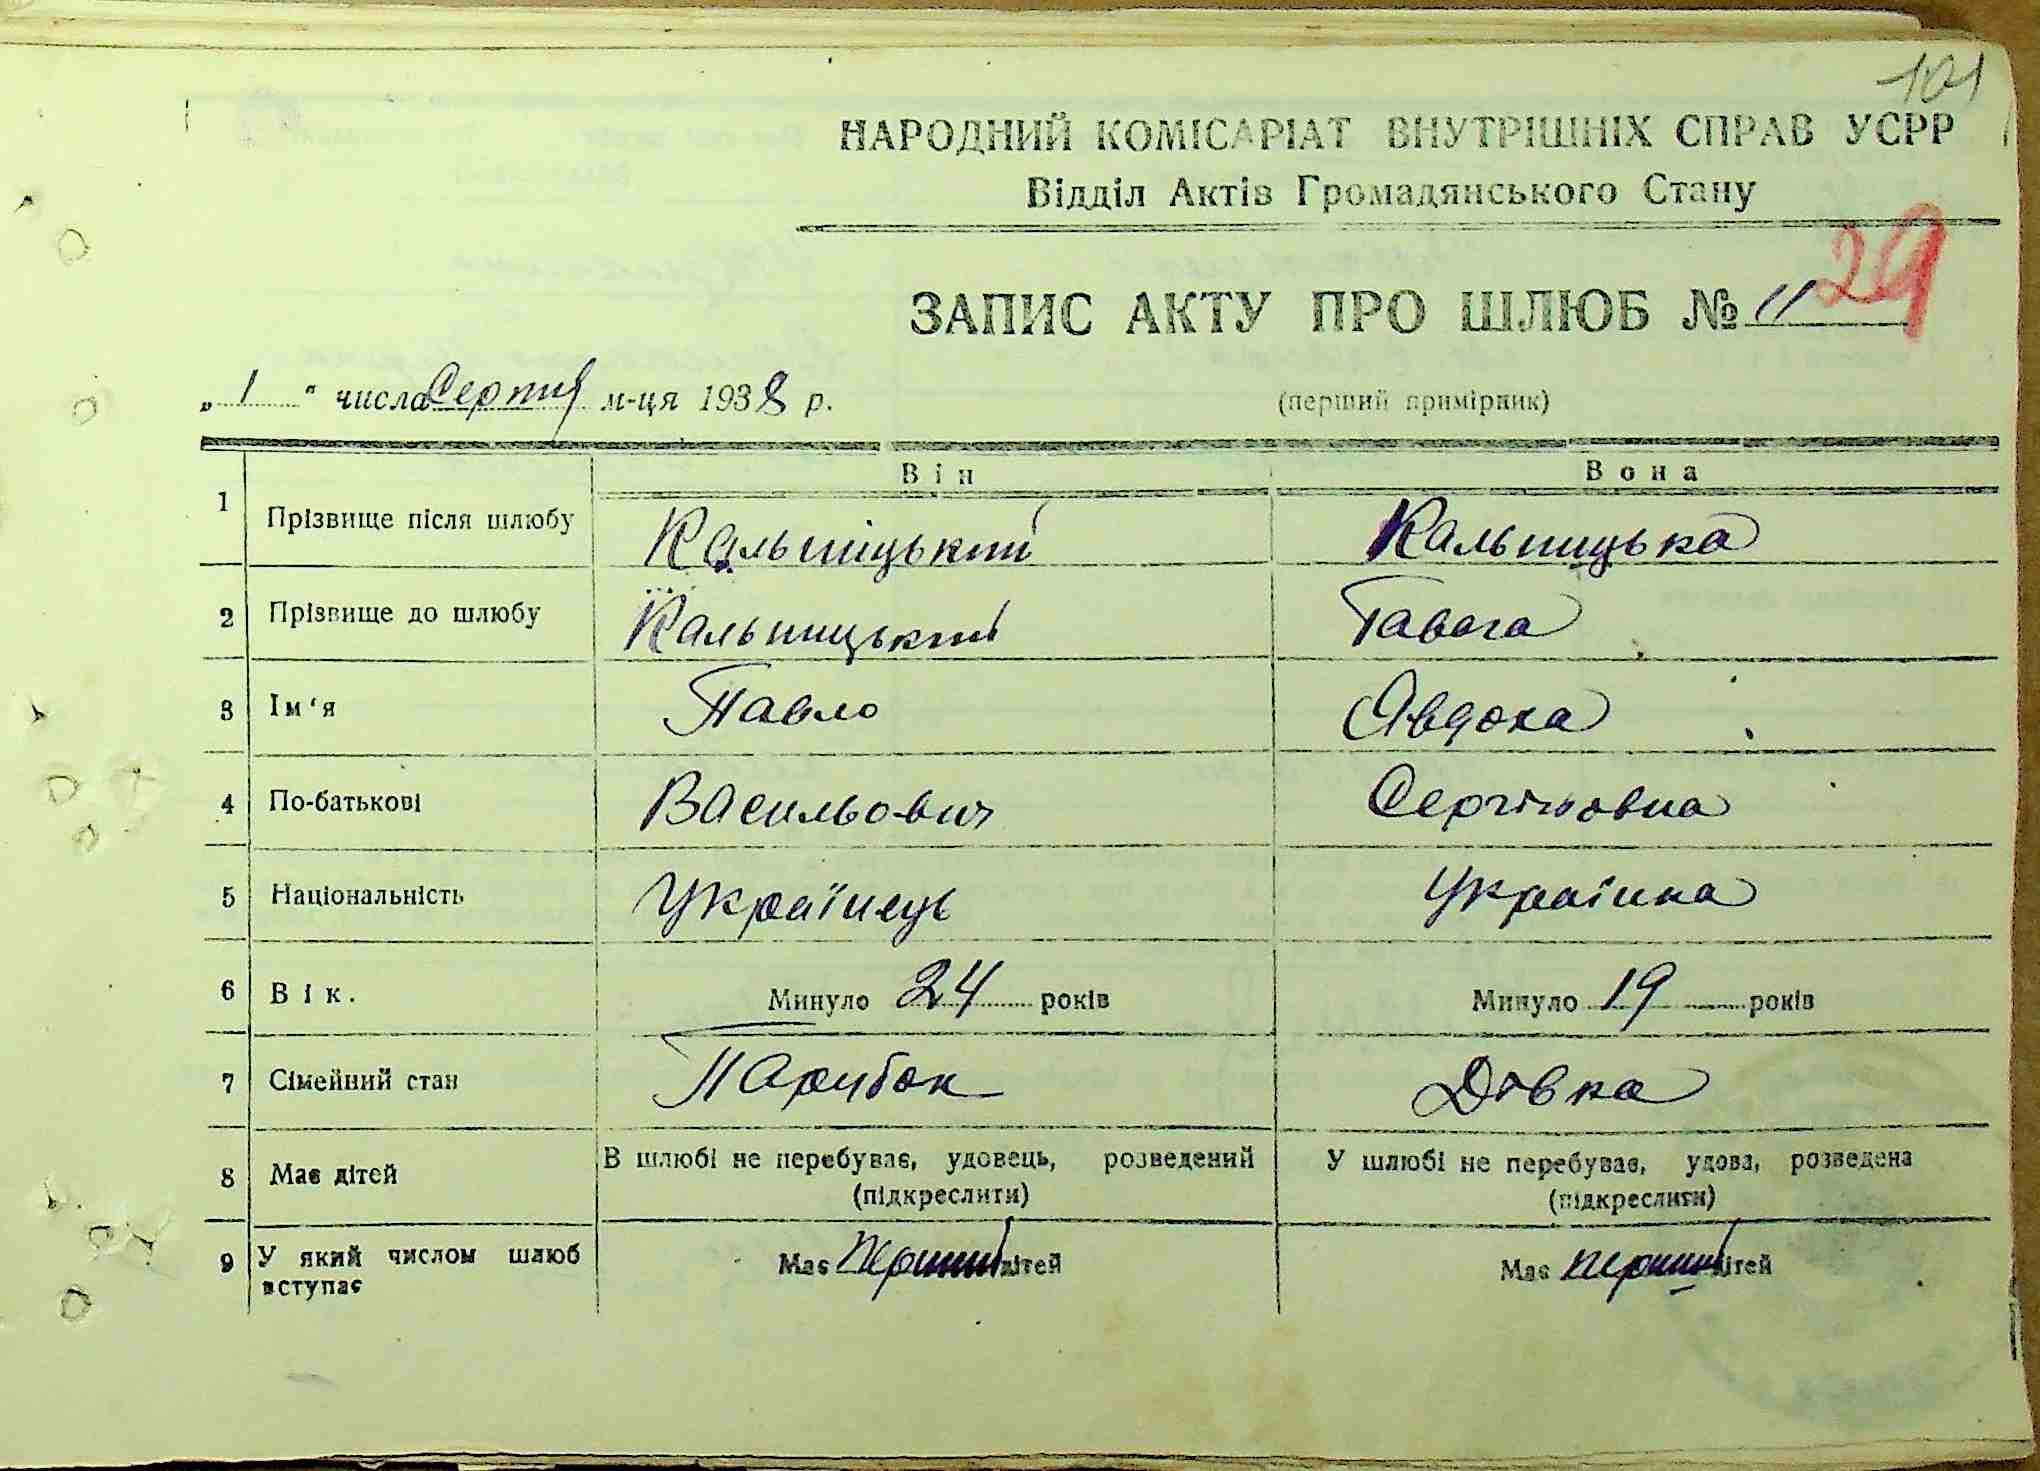 101
НАРОДНИЙ КОМІСАРІАТ ВНУТРІШНІХ СПРАВ УСРР
Відділ Актів Громадянського Стану
29
ЗАПИС АКТУ ПРО ШЛЮБ № 11
„ 1 " числа Серпня м-ця 1938 р. (перший примірник)
Він Вона
1 Прізвище після шлюбу Кальніцький Кальницька
2 Прізвище до шлюбу Кальницький Гавага
3 Ім'я Павло Явдоха
4 По-батькові Васильович Сергіновна
5 Національність Українець Українка
6 Вік. Минуло 24 років Минуло 19 років
7 Сімейний стан Парубок Дівка
8 Має дітей В шлюбі не перебуває, удовець, розведений У шлюбі не перебуває, удова, розведена
(підкреслити) (підкреслити)
9 У який числом шлюб Має перший дітей Має перший дітей
вступає